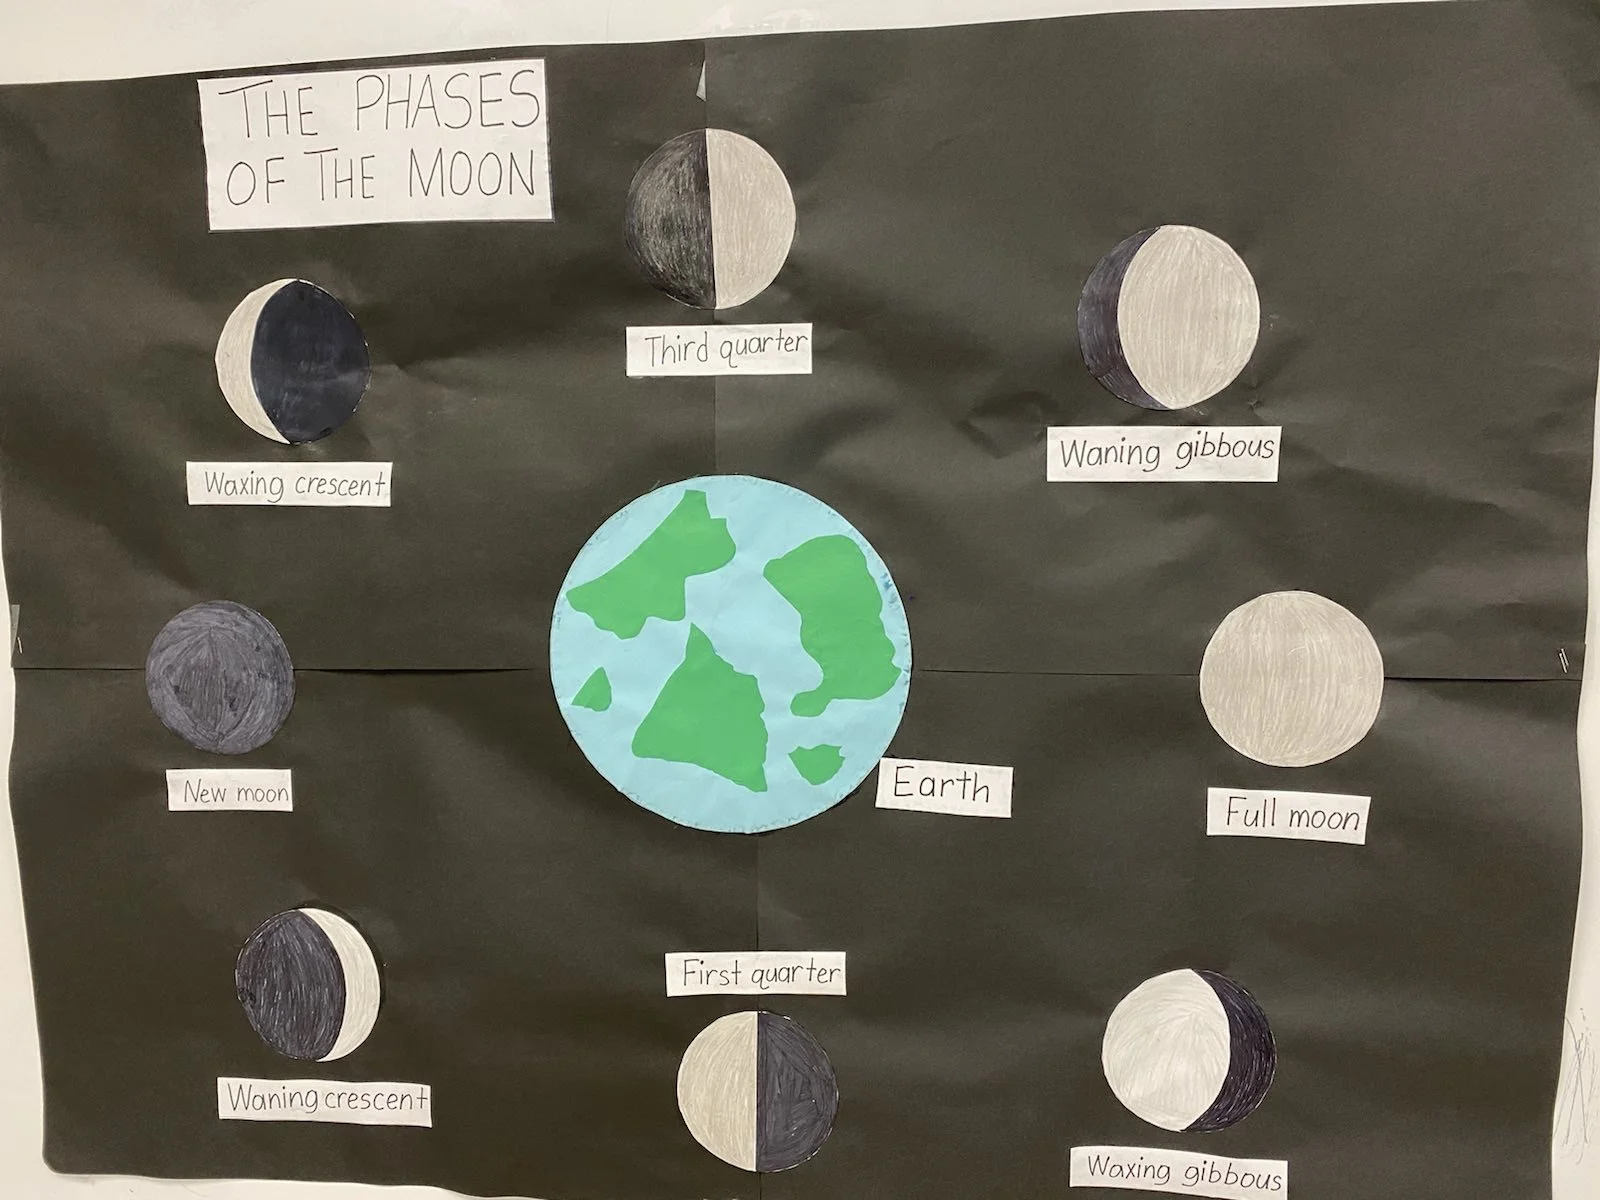 THE PHASES
OF THE MOON
Third quarter
Waning gibbous
Waxing crescent
Earth
New moon
Full moon
First quarter
Waning crescent
Waxing gibbous